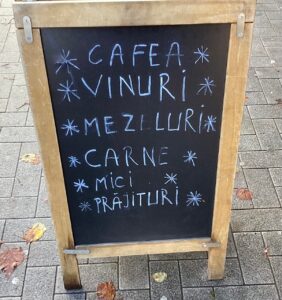 CAFEA
VINURI
MEZELURI
CARNE
MICI
PRĂJITURI